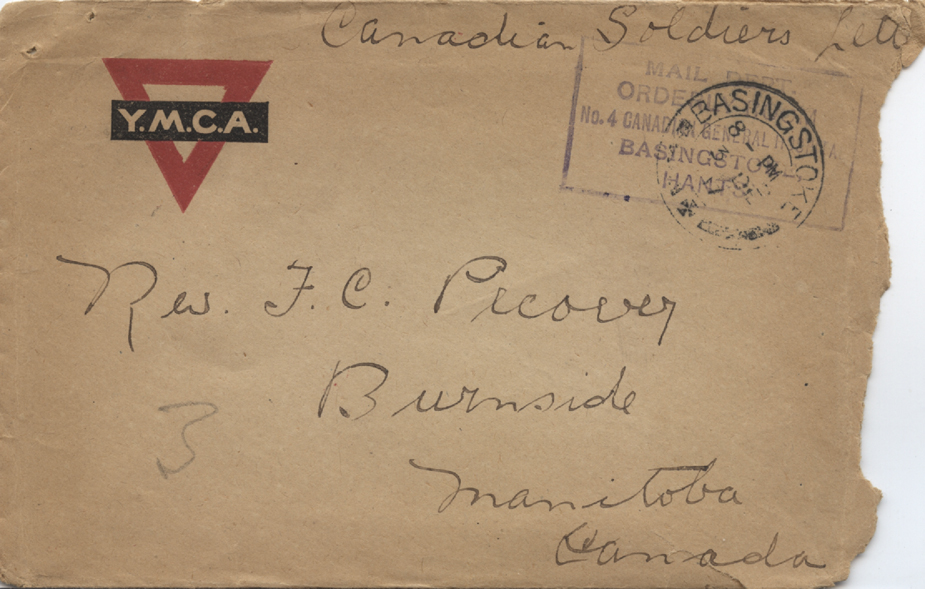 Canadian Soldiers Lett
Y.M.C.A.
MAIL DEPT
No. 4 CANADIAN GENERAL
BASINGSTOKE
HANTS
BASINGSTOKE
8 - PM
Rev. F. C. Pecover
Burnside
3
Manitoba
Canada